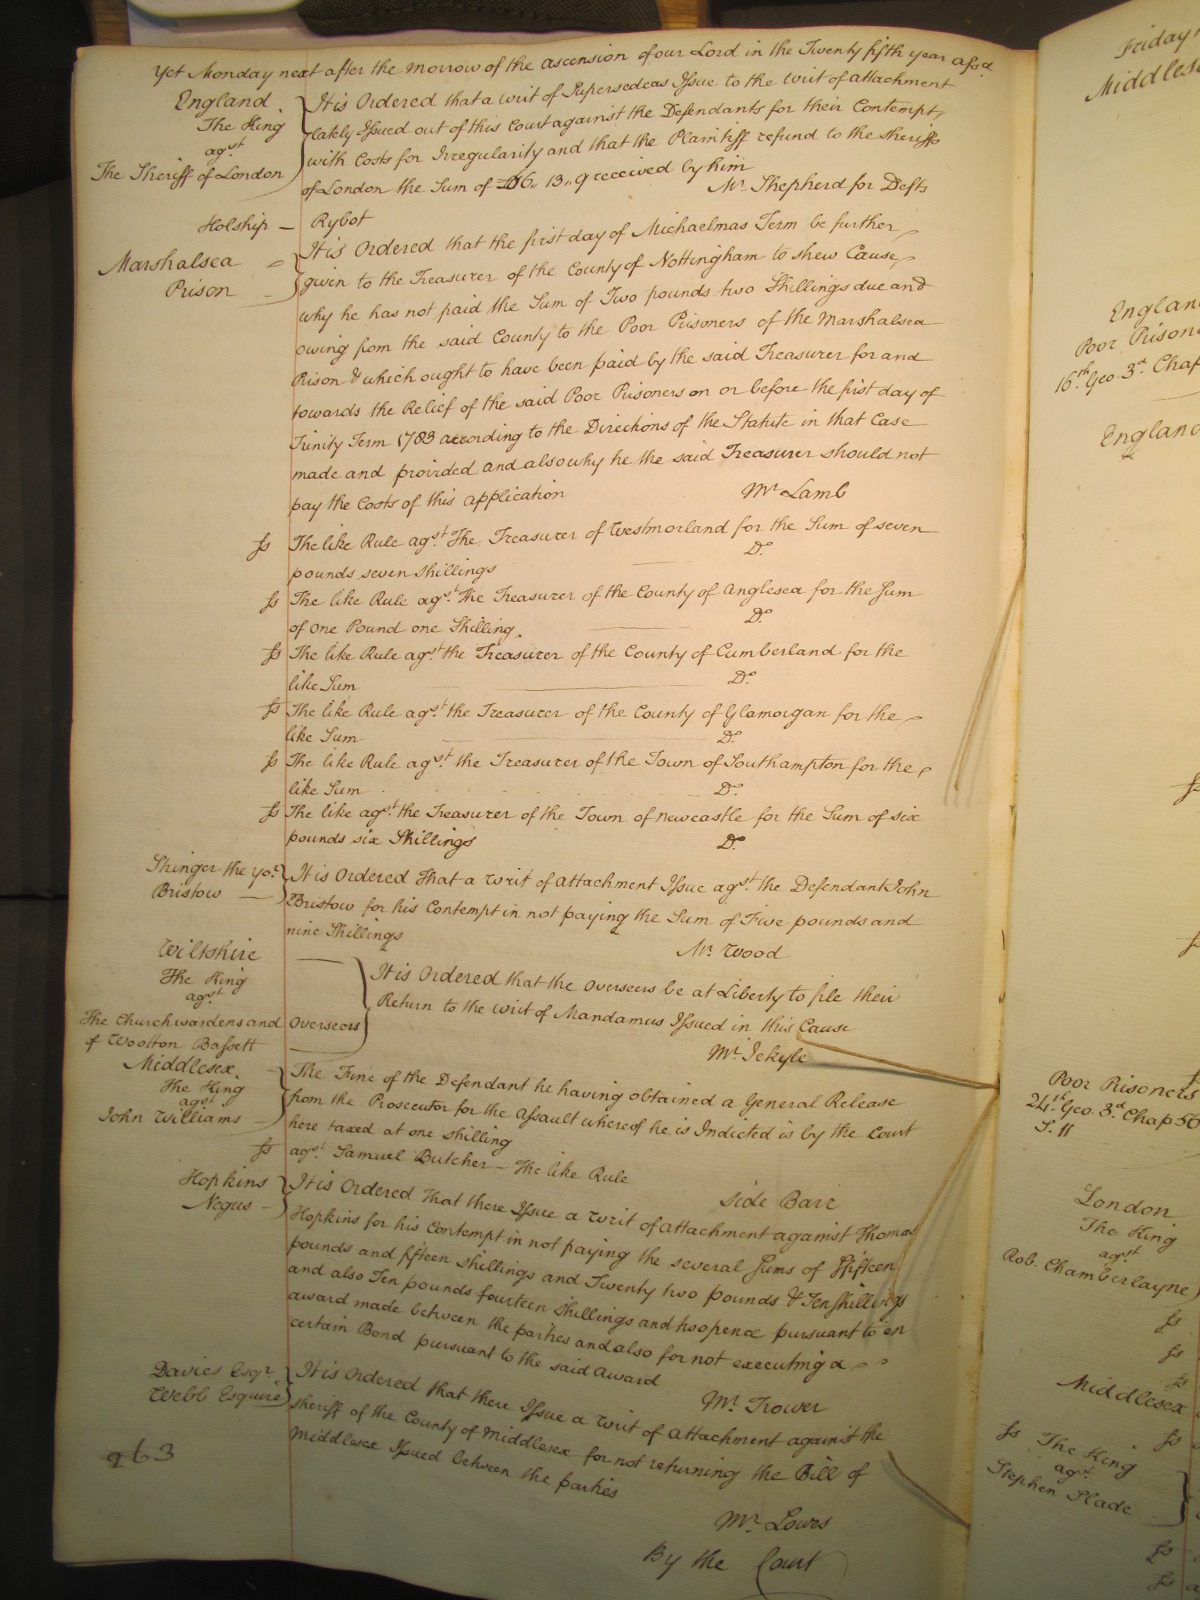 Yet Monday next after the Morrow of the Ascension of our Lord in the Twenty fifth year afsd.
England
The King
agst
The Sheriff of London
It is Ordered that a writ of Supersedeas Issue to the writ of attachment
lately Issued out of this Court against the Defendants for their Contempt,
with Costs for Irregularity and that the Plaintiff refund to the Sheriffs
of London the Sum of £6,, 13,, 9 received by him
Mr. Shepherd for Defts
Holship —
Rybot
Marshalsea
Prison
It is Ordered that the first day of Michaelmas Term be further
given to the Treasurer of the County of Nottingham to shew Cause
why he has not paid the Sum of Two pounds two Shillings due and
owing from the said County to the Poor Prisoners of the Marshalsea
Prison & which ought to have been paid by the said Treasurer for and
towards the Relief of the said Poor Prisoners on or before the first day of
Trinity Term 1783 according to the Directions of the Statute in that Case
made and provided and also why he the said Treasurer should not
pay the Costs of this application
Mr. Lamb
fs The like Rule agst. The Treasurer of Westmorland for the Sum of seven
pounds seven shillings
Do.
fs The like Rule agst. the Treasurer of the County of Anglesea for the Sum
of one Pound one Shilling.
Do.
fs The like Rule agst. the Treasurer of the County of Cumberland for the
like Sum
Do.
fs The like Rule agst. the Treasurer of the County of Glamorgan for the
like Sum
Do.
fs The like Rule agst. the Treasurer of the Town of Southampton for the
like Sum
Do.
fs The like agst. the Treasurer of the Town of Newcastle for the Sum of six
pounds six Shillings
Do.
the yor.
Bristow —
It is Ordered That a writ of attachment Issue agst. the Defendant John
Bristow for his Contempt in not paying the Sum of Five pounds and
nine Shillings
Mr. Wood
Wiltshire
The King
agst
The Churchwardens and Overseers
of Wootton Bassett
It is Ordered that the Overseers be at Liberty to file their
Return to the writ of Mandamus Issued in this Cause
Mr. Jekyle
Middlesex.
The King
agst.
John Williams —
The Fine of the Defendant he having obtained a General Release
from the Prosecutor for the Assault whereof he is Indicted is by the Court
here taxed at one shilling
fs agst. Samuel Butcher — The like Rule
Side Barr
Hopkins
Negus —
It is Ordered That there Issue a writ of attachment against Thomas
Hopkins for his Contempt in not paying the several Sums of Fifteen
pounds and fifteen shillings and Twenty two pounds & Ten shillings
and also Ten pounds fourteen shillings and twopence pursuant to an
award made between the parties and also for not executing a
certain Bond pursuant to the said award
Mr. Trower
Davies Esqr.
Webb Esquire
It is Ordered that there Issue a writ of attachment against the
Sheriff of the County of Middlesex for not returning the Bill of
Middlesex Issued between the parties
Mr. Lowes
By the Court
263
Friday
Middlesex
England
Poor Prisone
16th. Geo. 3rd. Chap
England
fs
fs
Poor Prisoners
24th. Geo. 3rd. Chap 56
S. 11
London
The King
agst
Rob. Chamberlayne
fs
fs
fs
Middlesex
fs
fs The King
agst.
Stephen Slade
fs
fs